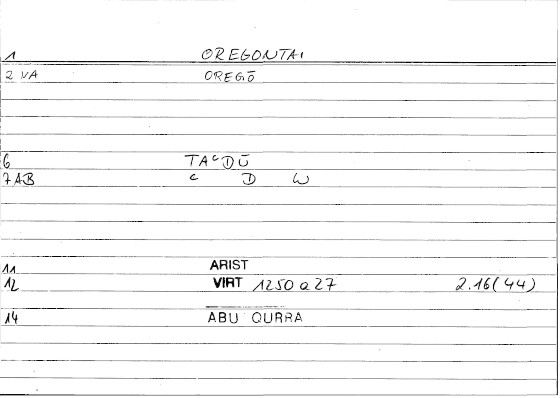 1 OREGONTAI
2 VA OREGŌ
6 TAᶜDŪ
7 AB C D W
11 ARIST
12 VIRT 1250 a 27 2.16(44)
14 ABU QURRA